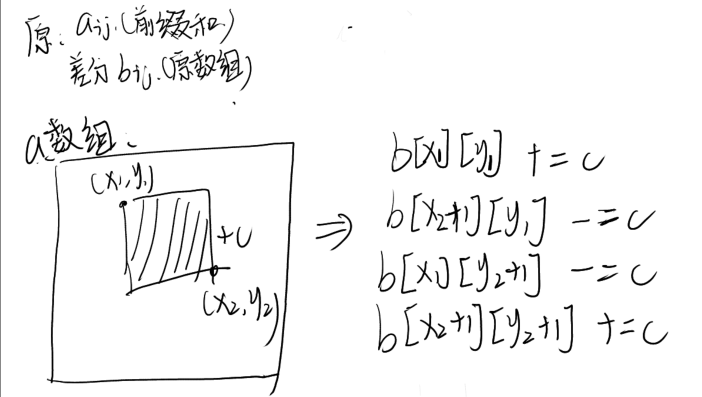 原: aij.(前缀和)
差分 bij.(原数组)
a数组:
(x₁,y₁)
+c
(x₂,y₂)
⇒
b[x₁][y₁] += c
b[x₂+1][y₁] -= c
b[x₁][y₂+1] -= c
b[x₂+1][y₂+1] += c